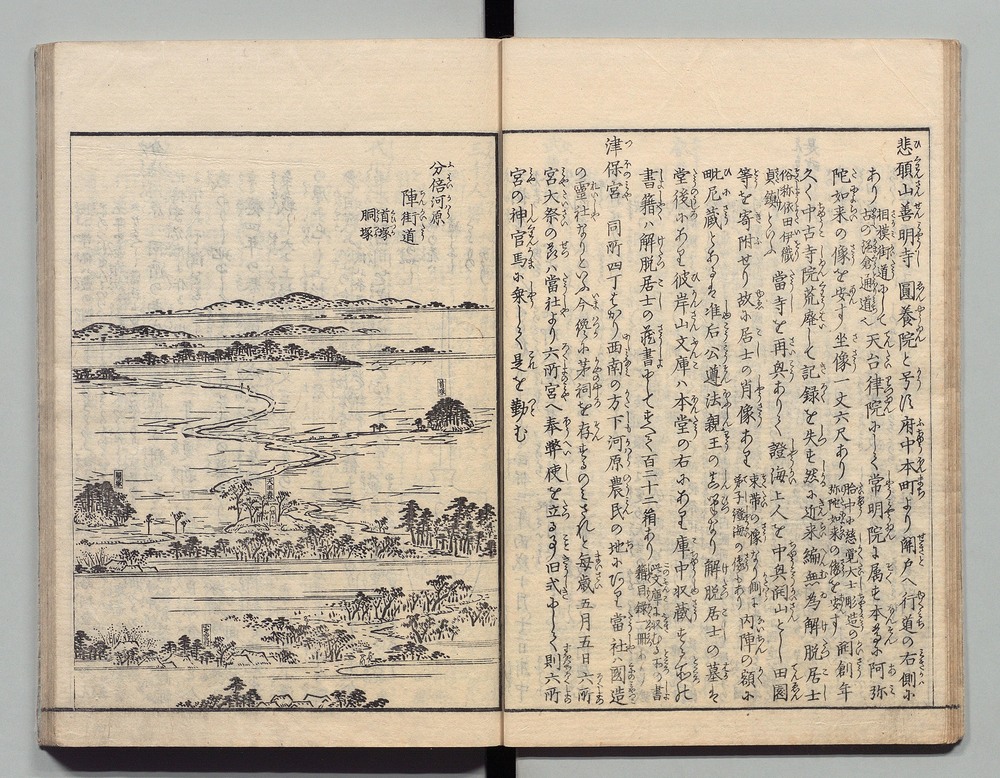 悲願山善明寺 圓養院と号す府中本町より関戸へ行道の右側に
あり 相模街道にして 古の鎌倉通道と 天台律院にして常明院に属も本尊ハ阿弥
陀如来の像を安す坐像一丈六尺あり 開創年
久く中古寺院荒廃して記録を失も然に近来編無為解脱居士
俗称依田伊織 貞鎮といふ 當寺を再興ありて證海上人を中興開山とし田園
等を寄附せり故に居士の肖像あり 束帯の像なり 内陣の額に
毗尼蔵とあるは准后公遵法親王の 解脱居士の墓は
堂後にあり彼岸山文庫ハ本堂の右にあり庫中収蔵する所の
書籍ハ解脱居士の蔵書にしてすべて百二十二箱あり
津保宮 同所四丁ばかり西南の方下河原農民の地にあり當社ハ國造
の霊社なりといふ今纔に茅祠を存するのみされと毎歳五月五日六所
宮大祭の節ハ當社より六所宮へ奉幣使を立る事旧式にして則六所
宮の神官馬に乗して是を勤む
分倍河原
陣街道
首塚
胴塚